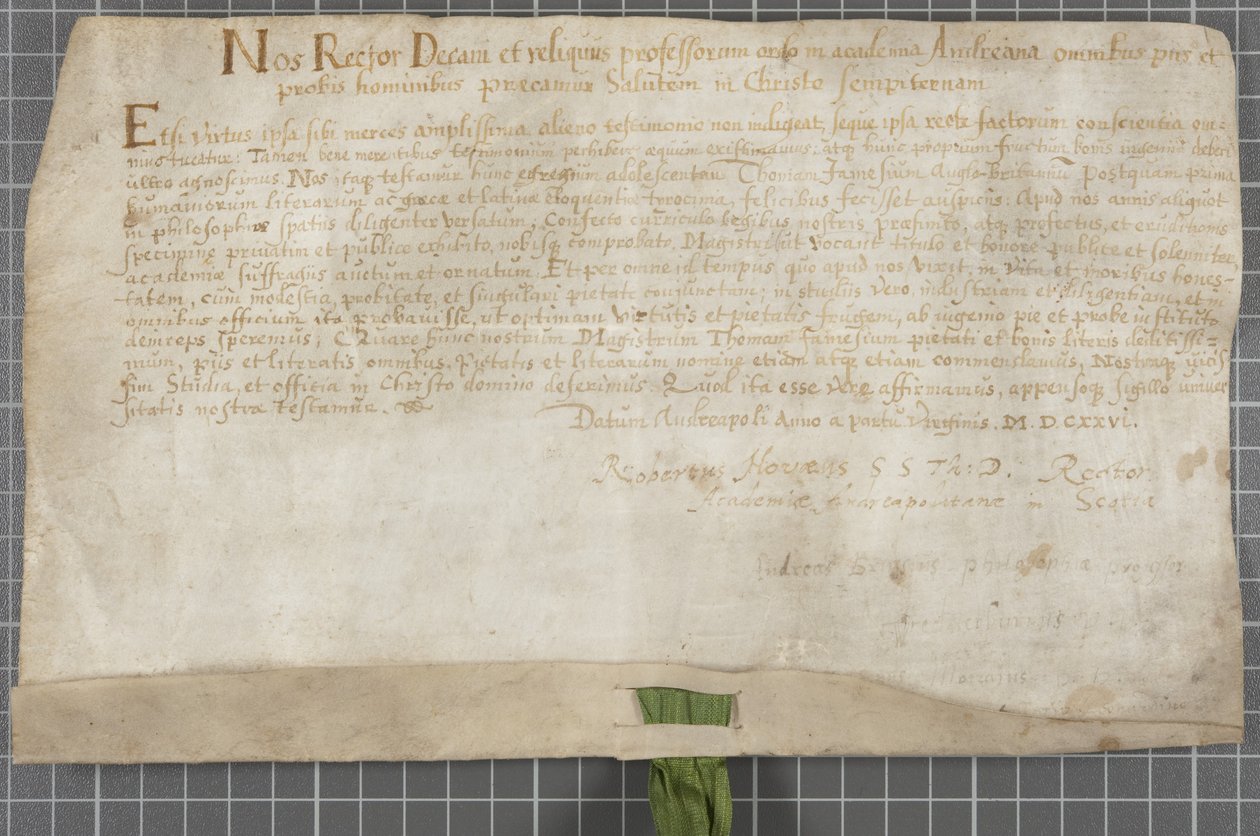 Nos Rector Decani et reliquus professorum ordo in academia Andreana omnibus piis et
probis hominibus præcamur Salutem in Christo sempiternam
Etsi virtus ipsa sibi merces amplissima alieno testimonio non indigeat, seque ipsa recte factorum conscientia om-
nino tueatur: Tamen bene merentibus testimonium perhibere æquum existimamus: atq hunc proprium fructum bonis ingeniis deberi
ultro agnoscimus. Nos itaq testamur hunc egregium adolescentem Thomam Jamesium Anglo-Britannū Postquam prima
humaniorum literarum ac græcæ et latinæ eloquentiæ tyrocinia, felicibus fecisset auspiciis: Apud nos annis aliquot
in philosophiæ spatiis diligenter versatum; Confecto curriculo legibus nostris præfinito, atq profectus, et eruditionis
specimine privatim et publice exhibito, nobisq comprobato, Magistri ut vocant titulo et honore publice et solenniter
academiæ suffragiis auctum et ornatum. Et per omne id tempus quo apud nos vixit, in vita et moribus hones-
tatem, cum modestia, probitate, et singulari pietate conjunctam; in studiis vero, industriam et diligentiam, et in
omnibus officium ita probavisse, ut optimam virtutis et pietatis frugem, ab ingenio pie et probe instituto
deinceps speremus; Quare hunc nostrum Magistrum Thomam Jamesium pietati et bonis literis deditissi=
mum, piis et literatis omnibus, Pietatis et literarum nomine etiam atq etiam commendamus, Nostraq vicis
sim Studia, et officia in Christo domino deferimus. Quod ita esse vere affirmamus, appensoq sigillo univer
sitatis nostræ testamur.
Datum Andreapoli Anno a partu Virginis. M. D. CXXVI.
Robertus Hovæus S S Th: D. Rector
Academiæ Andreapolitanæ in Scotia
Andreas Brussius philosophiæ professor